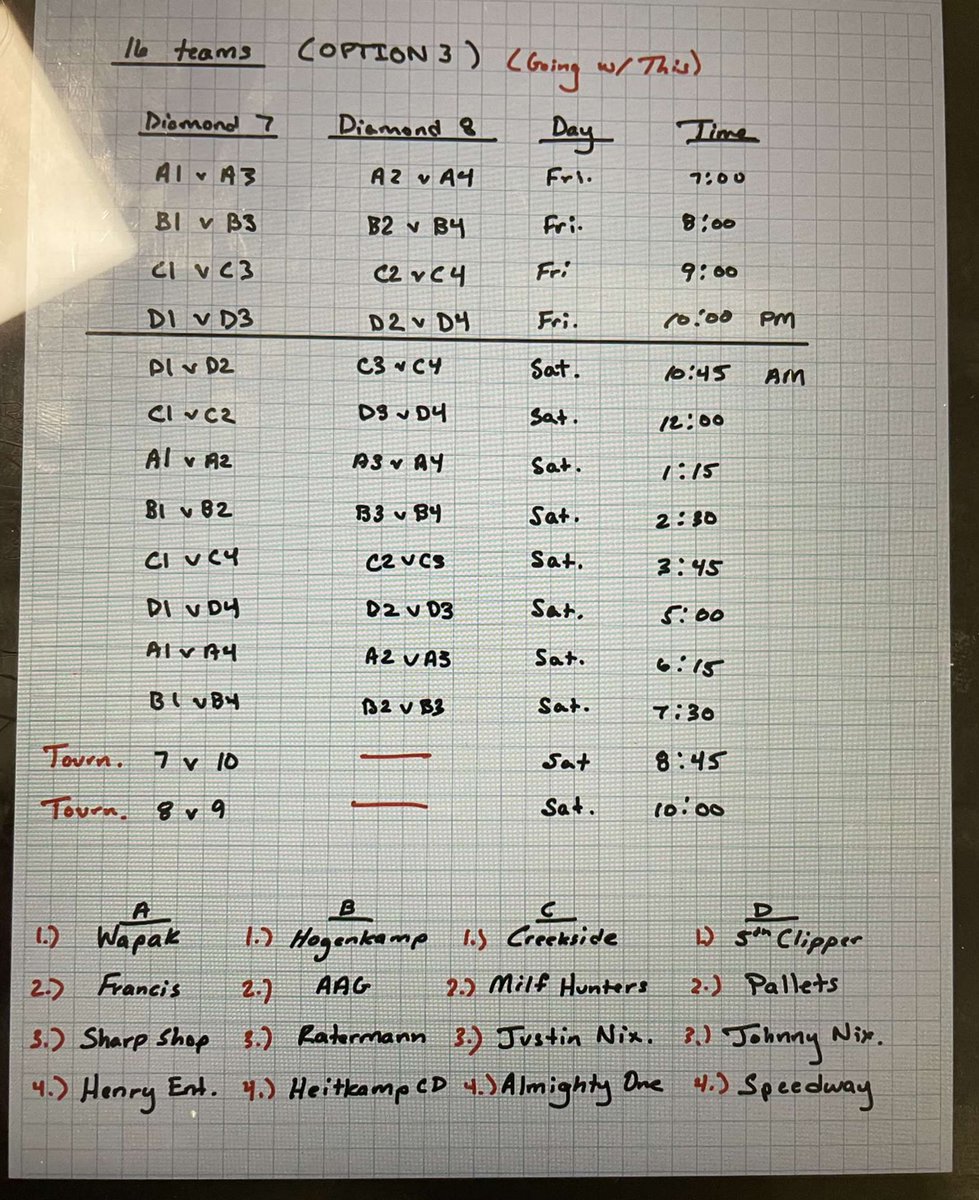 16 teams (OPTION 3) (Going w/ This)
Diamond 7 Diamond 8 Day Time
A1 v A3 A2 v A4 Fri. 7:00
B1 v B3 B2 v B4 Fri. 8:00
C1 v C3 C2 v C4 Fri 9:00
D1 v D3 D2 v D4 Fri. 10:00 PM
D1 v D2 C3 v C4 Sat. 10:45 AM
C1 v C2 D3 v D4 Sat. 12:00
A1 v A2 A3 v A4 Sat. 1:15
B1 v B2 B3 v B4 Sat. 2:30
C1 v C4 C2 v C3 Sat. 3:45
D1 v D4 D2 v D3 Sat. 5:00
A1 v A4 A2 v A3 Sat. 6:15
B1 v B4 B2 v B3 Sat. 7:30
Tourn. 7 v 10 — Sat 8:45
Tourn. 8 v 9 — Sat. 10:00
A B C D
1.) Wapak 1.) Hogenkamp 1.) Creekside 1.) 5th Clipper
2.) Francis 2.) AAG 2.) Milf Hunters 2.) Pallets
3.) Sharp Shop 3.) Ratermann 3.) Justin Nix. 3.) Johnny Nix.
4.) Henry Ent. 4.) Heitkamp CD 4.) Almighty One 4.) Speedway